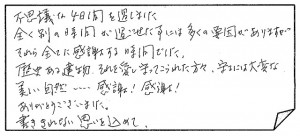 不思議な4日間を過しました
全く別の時間が過ごせたすには多くの要因がありますが
それら全てに感謝する時間でした。
歴史ある建物、それを愛し守ってこられた方々、さらには大変な
美しい自然 …… 感謝！感謝！
ありがとうございました。
書ききれない思いを込めて。